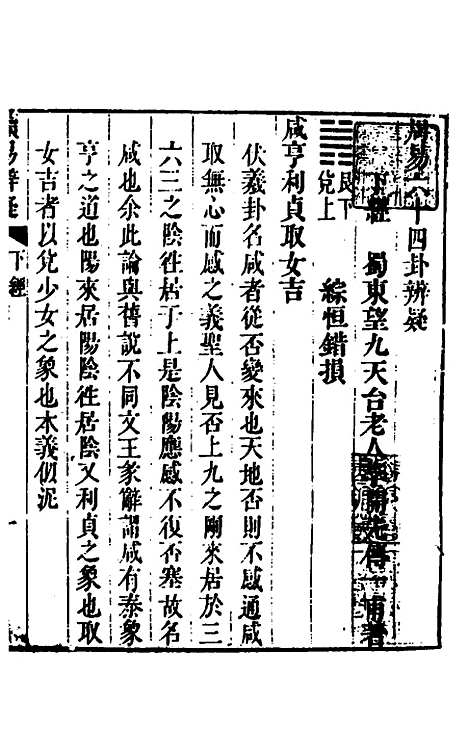 周易六十四卦辨疑
下經　蜀東望九天台老人李開先傳一甫著
艮下
兌上
綜恒錯損
咸亨利貞取女吉
伏羲卦名咸者從否變來也天地否則不感通咸
取無心而感之義聖人見否上九之剛來居於三
六三之陰徃居于上是陰陽應感不復否塞故名
咸也余此論與舊說不同文王彖辭謂咸有泰象
亨之道也陽來居陽陰徃居陰又利貞之象也取
女吉者以兌少女之象也本義似泥
周易辨疑
下經